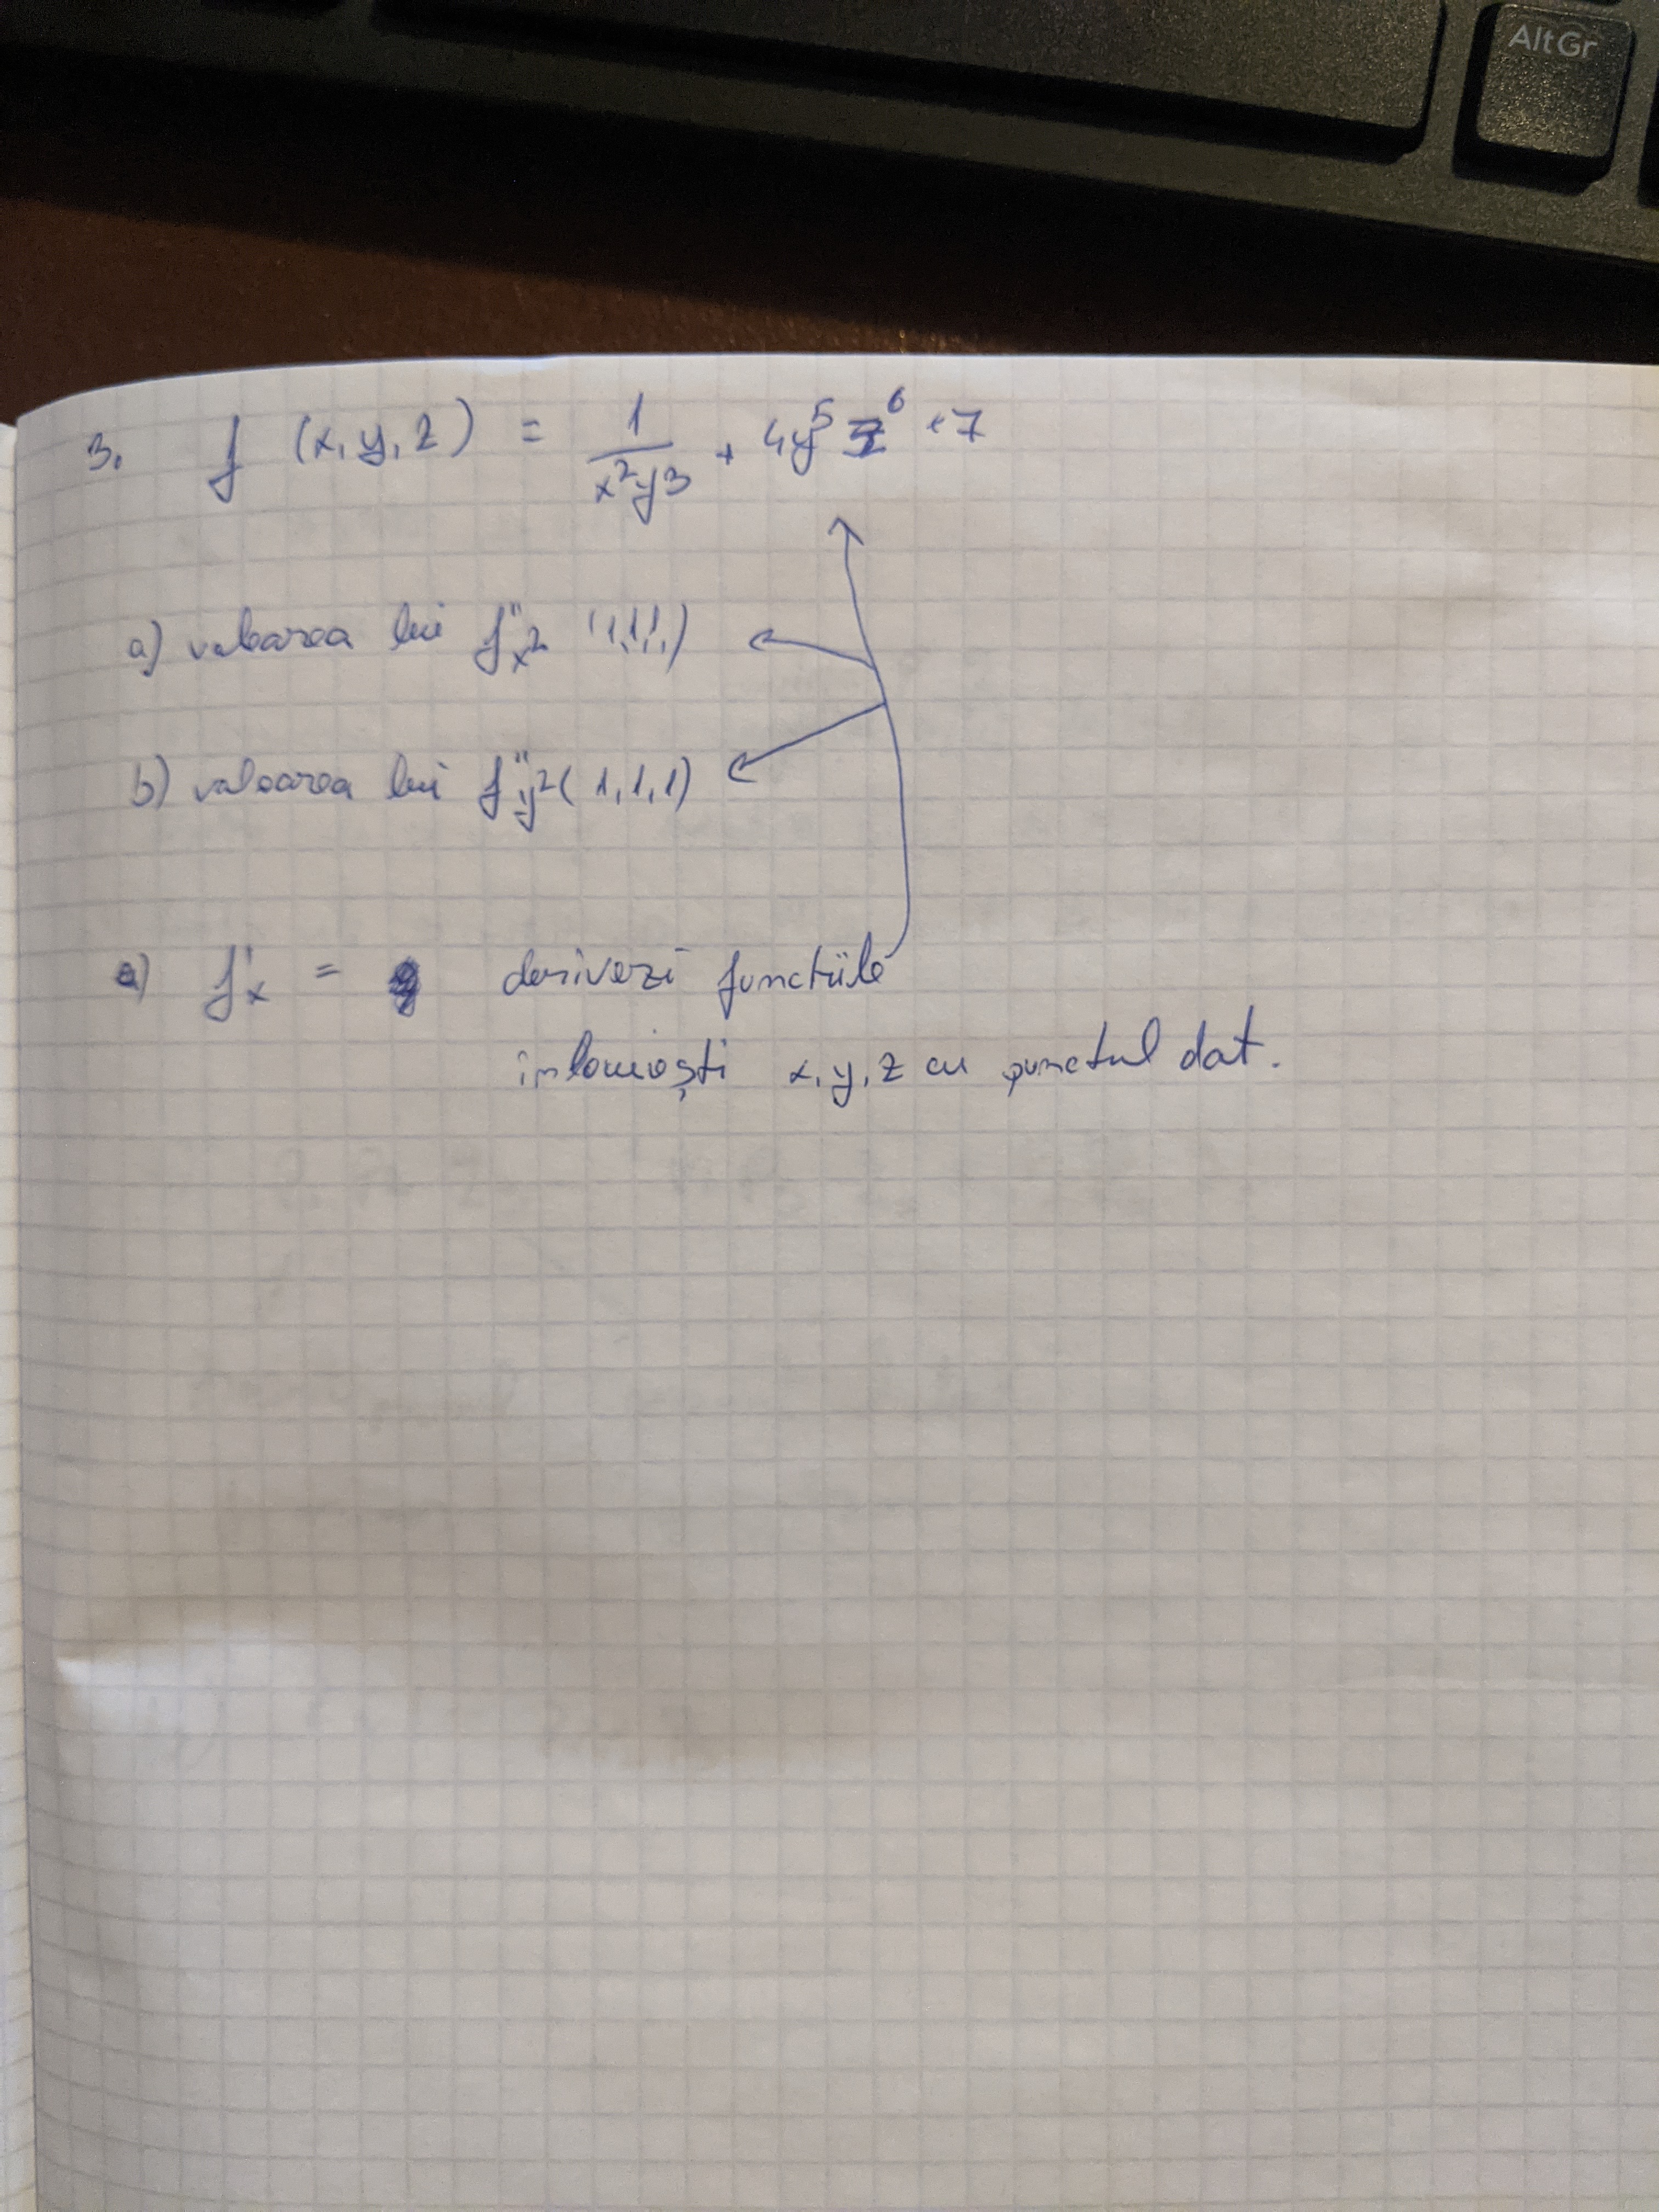 AltGr
3. f (x, y, z) = 1/(x²y³) + 4y⁵z⁶ + 7
a) valoarea lui f''x² (1,1,1)
b) valoarea lui f''y² (1, 1, 1)
a) f'x = derivezi funcțiile
înlocuiești x, y, z cu punctul dat.